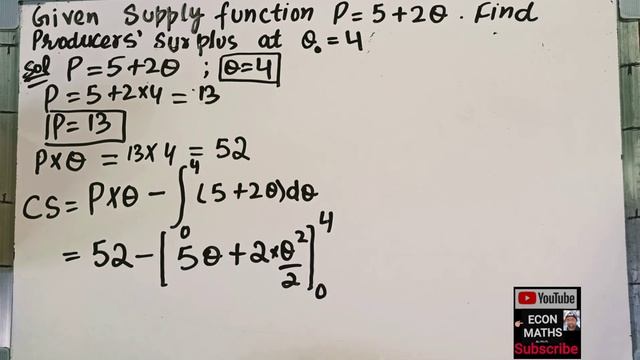 Given Supply function P = 5 + 2θ. Find
Producers' surplus at θ₀ = 4
Sol P = 5 + 2θ ; θ = 4
P = 5 + 2×4 = 13
P = 13
P×θ = 13×4 = 52
CS = P×θ - ∫₀⁴ (5 + 2θ)dθ
= 52 - [5θ + 2×θ²/2]₀⁴
YouTube
ECON
MATHS
Subscribe